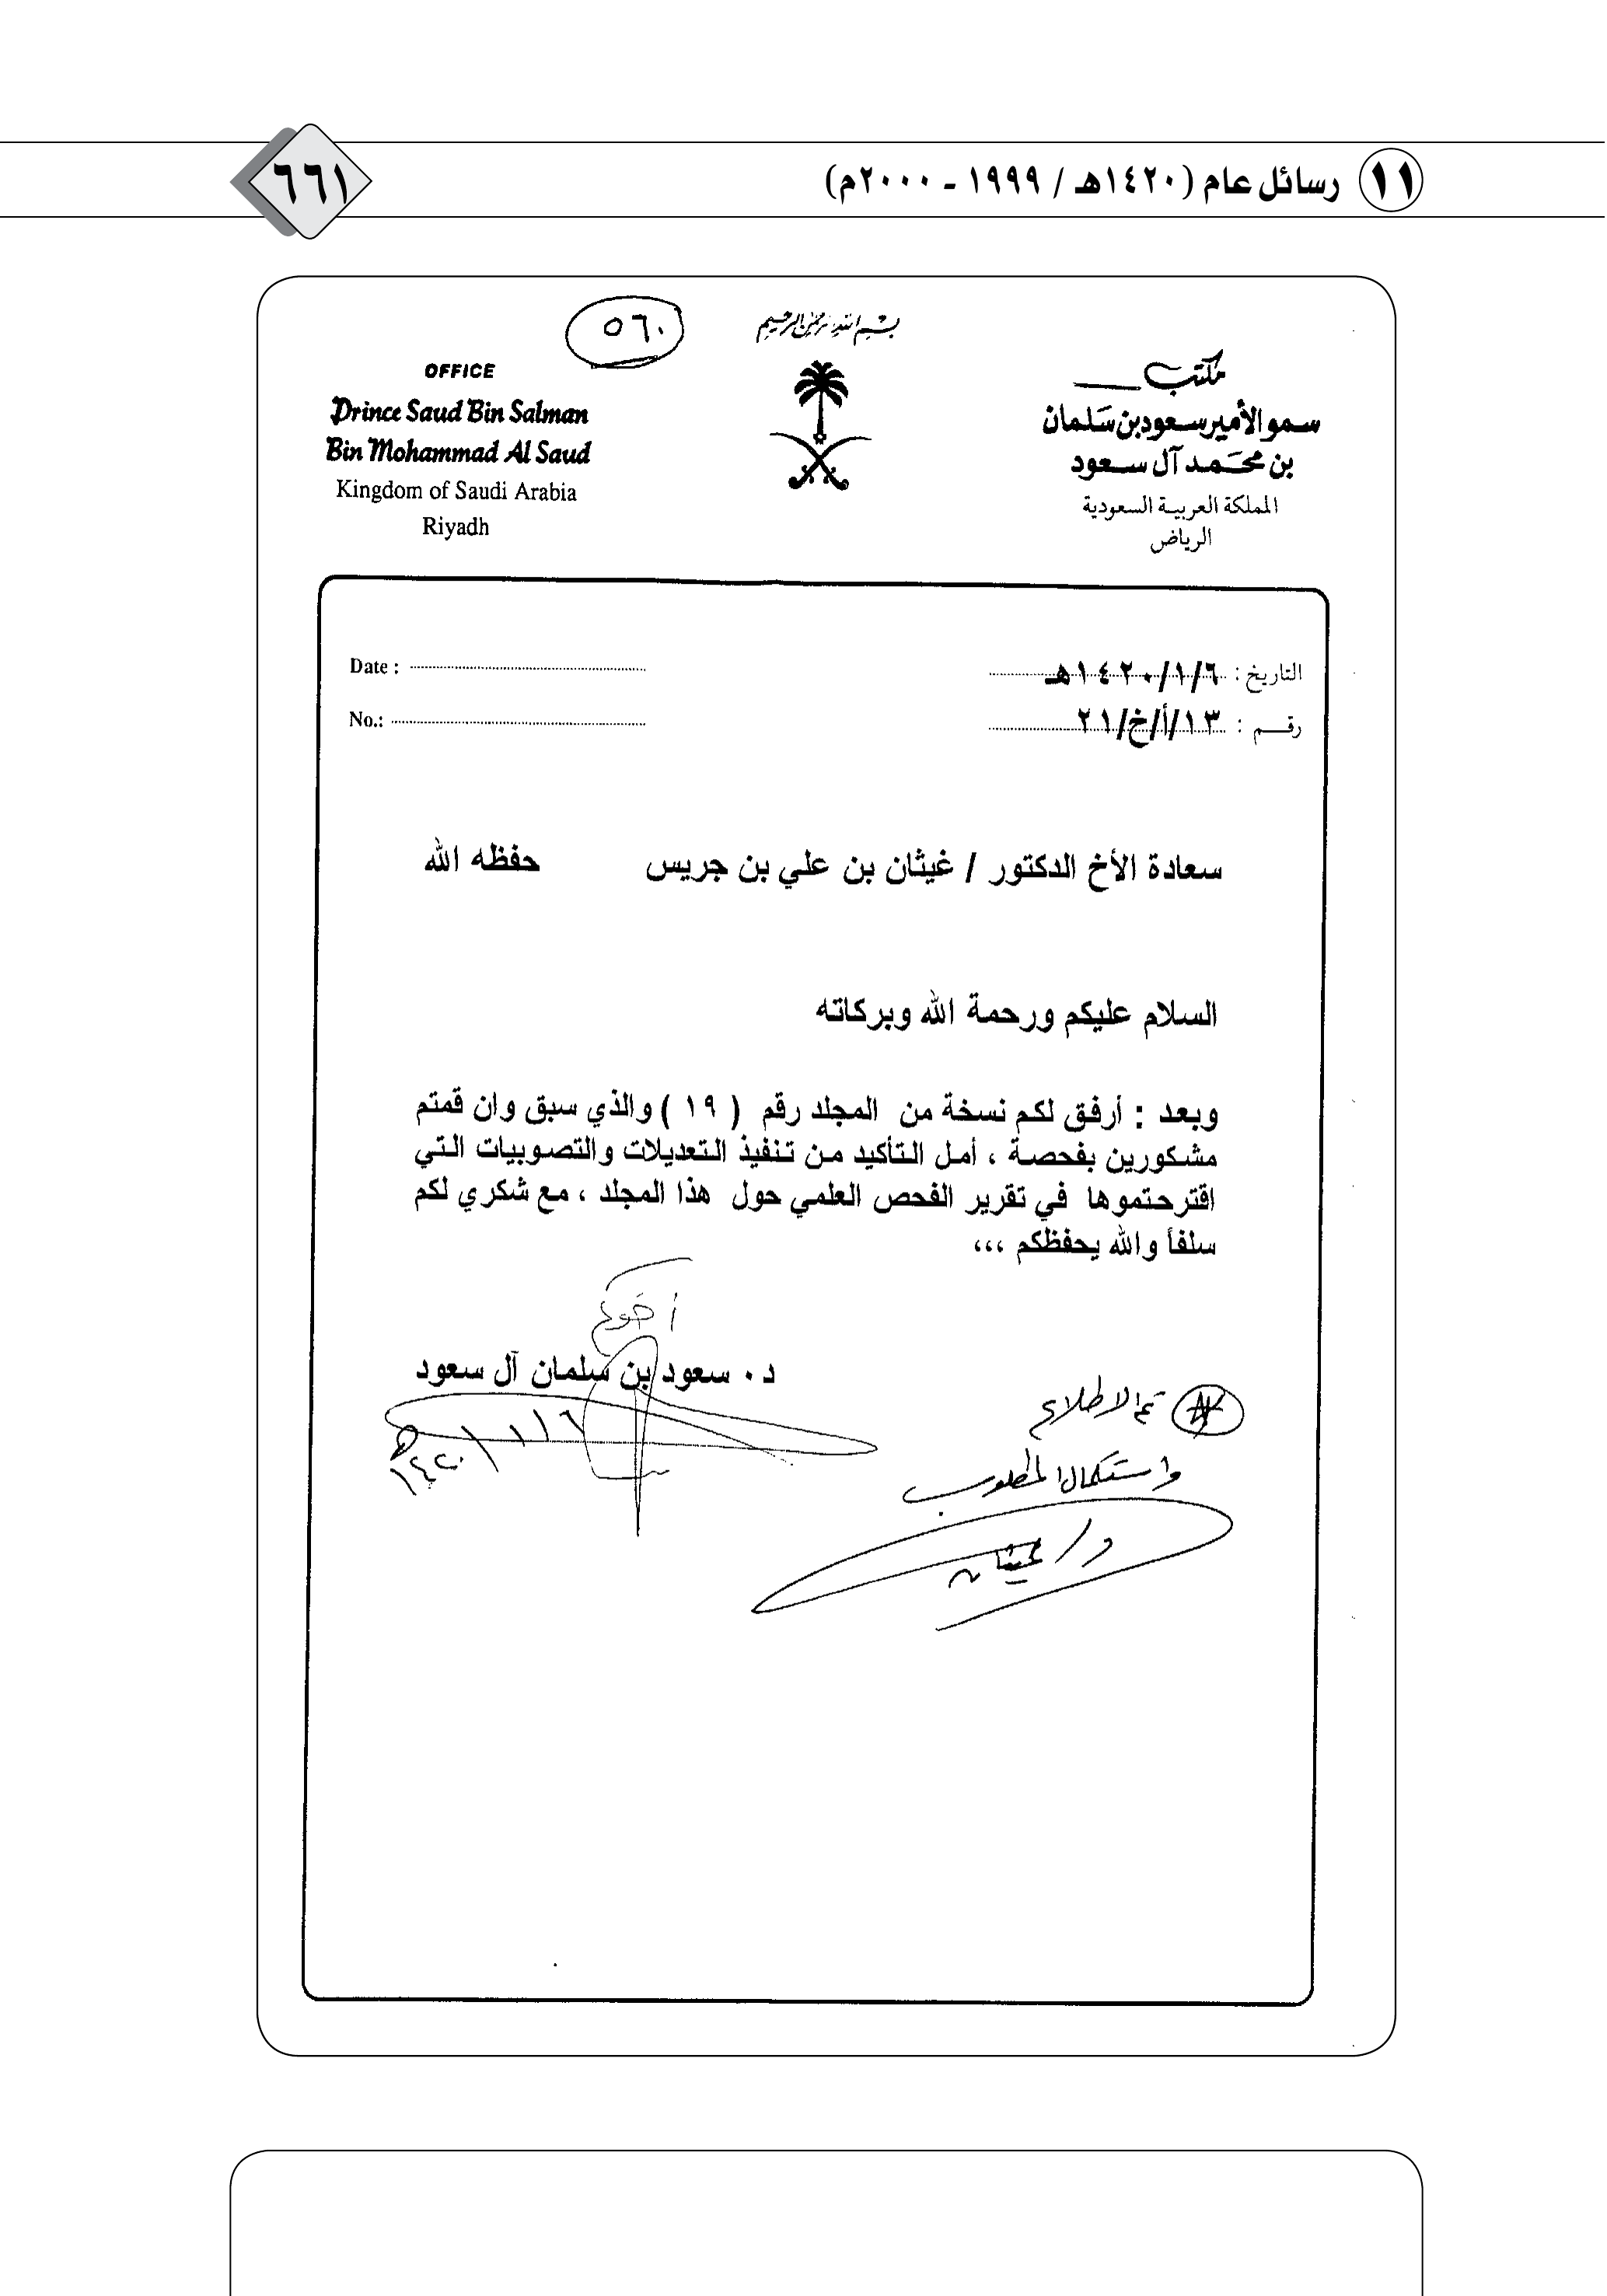 ١١ رسائل عام (١٤٢٠هـ / ١٩٩٩ - ٢٠٠٠م)
٦٦١
٥٦٠
بسم الله الرحمن الرحيم
مكتب
سمو الأمير سعود بن سلمان
بن محمد آل سعود
المملكة العربية السعودية
الرياض
OFFICE
Prince Saud Bin Salman
Bin Mohammad Al Saud
Kingdom of Saudi Arabia
Riyadh
التاريخ : ١٤٢٠/١/٦هـ
رقم : ١٣/أ/خ/٢١
Date :
No.:
سعادة الأخ الدكتور / غيثان بن علي بن جريس حفظه الله
السلام عليكم ورحمة الله وبركاته
وبعد : أرفق لكم نسخة من المجلد رقم ( ١٩ ) والذي سبق وان قمتم
مشكورين بفحصة ، أمل التأكيد من تنفيذ التعديلات والتصوبيات التي
اقترحتموها في تقرير الفحص العلمي حول هذا المجلد ، مع شكري لكم
سلفاً والله يحفظكم ،،،
أخوكم
د. سعود بن سلمان آل سعود
١٤٢٠/١/٦هـ
تم الاطلاع
واستكمال المطلوب
د/ غيثان